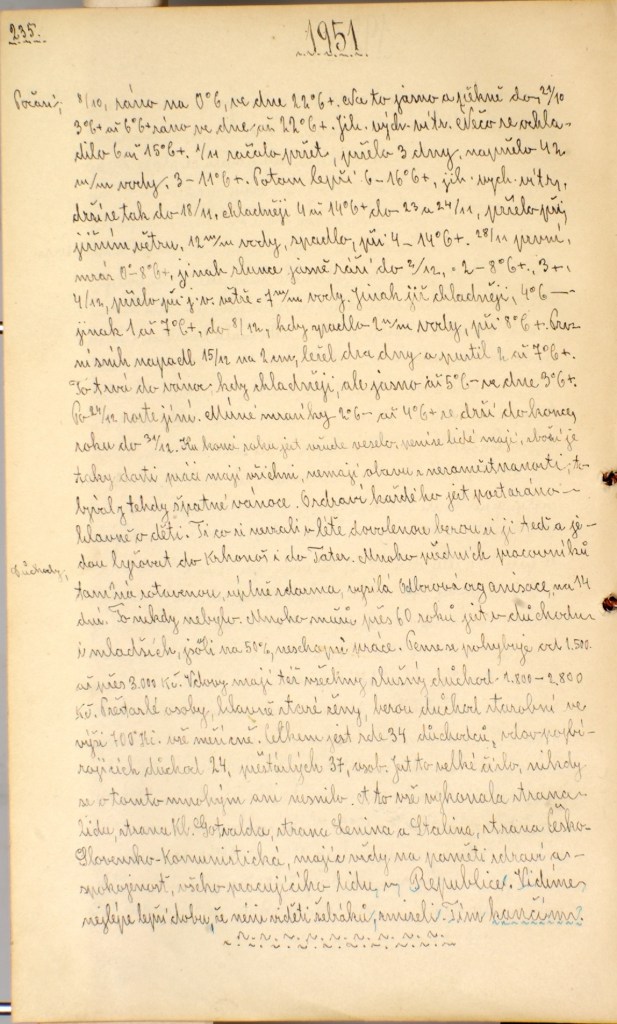 235.
1951
Počasí; 8/10, ráno na 0°C, ve dne 22°C+. Na to jasno a pěkně do 29/10
3°C+ až 6°C+ ráno ve dne až 22°C+. Jih. vých. vítr. Něco se ochla-
dilo 6 až 15°C+. 1/11 začalo pršet, pršelo 3 dny, napršelo 42
m/m vody, 3 – 11°C+. Potom lepší 6 – 16°C+, jih. vych. větry,
drží se tak do 18/11, chladněji 4 až 14°C+ do 23 a 24/11, pršelo při
jižním větru, 12 m/m vody, spadlo, při 4 – 14°C+. 28/11 první,
mráz 0° – 8°C+, jinak slunce jasně září do 2/12, – 2 – 8°C+, 3+,
4/12, pršelo při j.v. větře = 7 m/m vody. Jinak již chladněji, 4°C —
jinak 1 až 7°C+, do 8/12, kdy spadlo 2 m/m vody, při 8°C+. Prv-
ní sníh napadl 15/12 na 2 cm, ležel dva dny a pustil 2 až 7°C+.
To trvá do vánoc, kdy chladněji, ale jasno až 5°C – ve dne 3°C+.
Po 24/12 roste jíní. Mírné mrazíky 2°C – až 4°C+ se drží do konce
roku do 31/12. Ku konci roku jest všude veselo, peníze lidé mají, zboží je
taky dosti práci mají všichni, nemají obavu z nezaměstnanosti, to
bývaly tehdy špatné vánoce. O zdraví každého jest postaráno –
hlavně o děti. Ti co si nevzali v létě dovolenou berou si ji teď a je-
dou lyžovat do Krkonoš i do Tater. Mnoho předních pracovníků
Důchody; tam na zotavenou, úplně zdarma, vysílá Odborová organisace, na 14
dní. To nikdy nebylo. Mnoho mužů přes 60 roků jest v důchodu
i mladších, jsou-li na 50%, neschopní práce. Pense se pohybuje od 1.500
až přes 3.000 Kčs. Vdovy mají též všechny slušný důchod 1.800 – 2,800
Kčs. Přestárlé osoby, hlavně staré ženy, berou důchod starobní ve
výši 700 Kč. vše měsíčně. Celkem jest zde 34 důchodců, vdov pobí-
rajících důchod 24, přestárlých 37, osob. Jest to velké číslo, nikdy
se o tomto mnohým ani nesnilo. A to vše vykonala strana
lidu, strana Kl. Gotvalda, strana Lenina a Stalina, strana Česko-
Slovensko-Komunistická, majíc vždy na paměti zdraví a s-
spokojenost, všeho pracujícího lidu, v Republice. Vidíme
nejlépe lepší dobu, že není viděti žebráků, Tím končím.